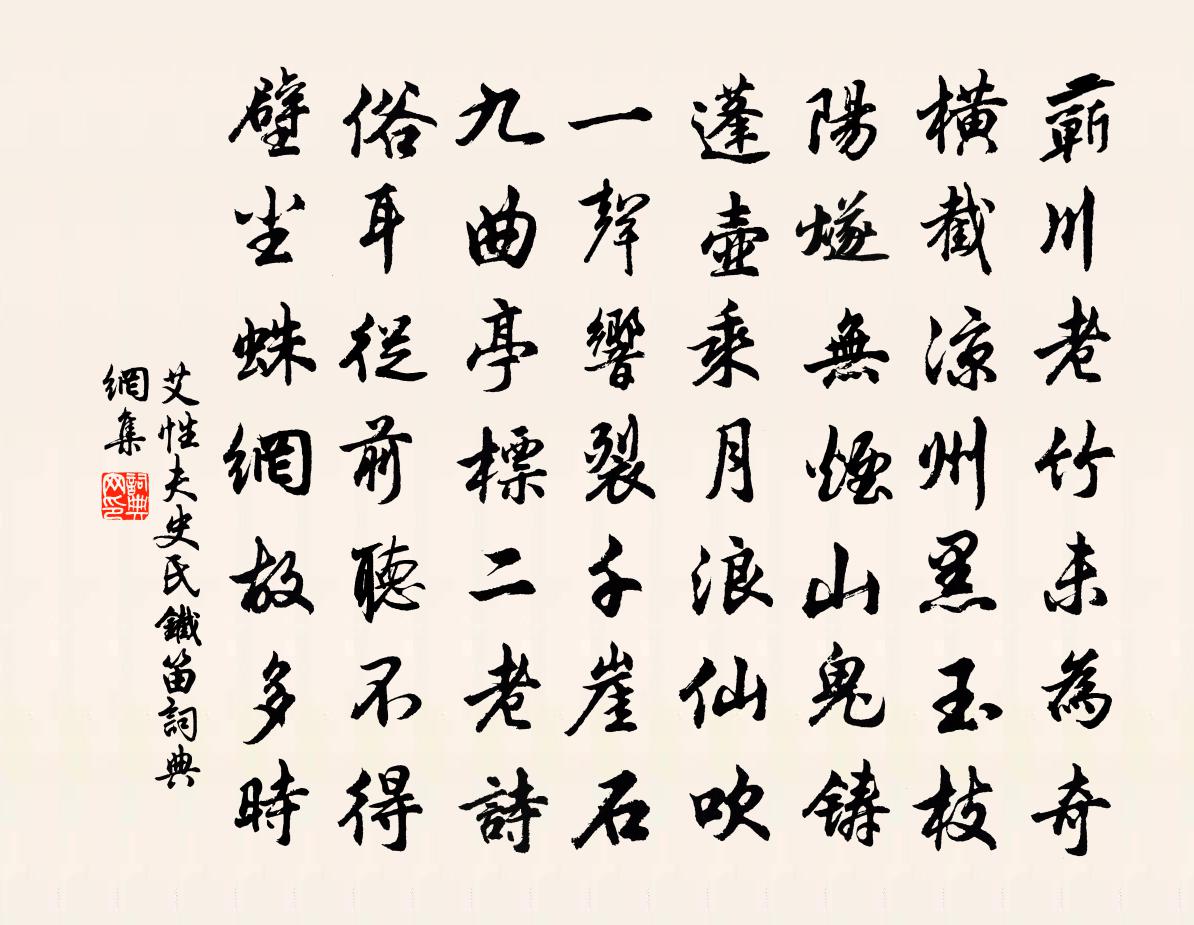 蘄川老竹未為奇
橫截涼州黑玉枝
陽燧無煙山鬼鑄
蓬壺乘月浪仙吹
一聲響裂千崖石
九曲亭標二老詩
俗耳從前聽不得
壁尘蛛網故多時
艾性夫史民鐵笛詞典
網集
詞典网印